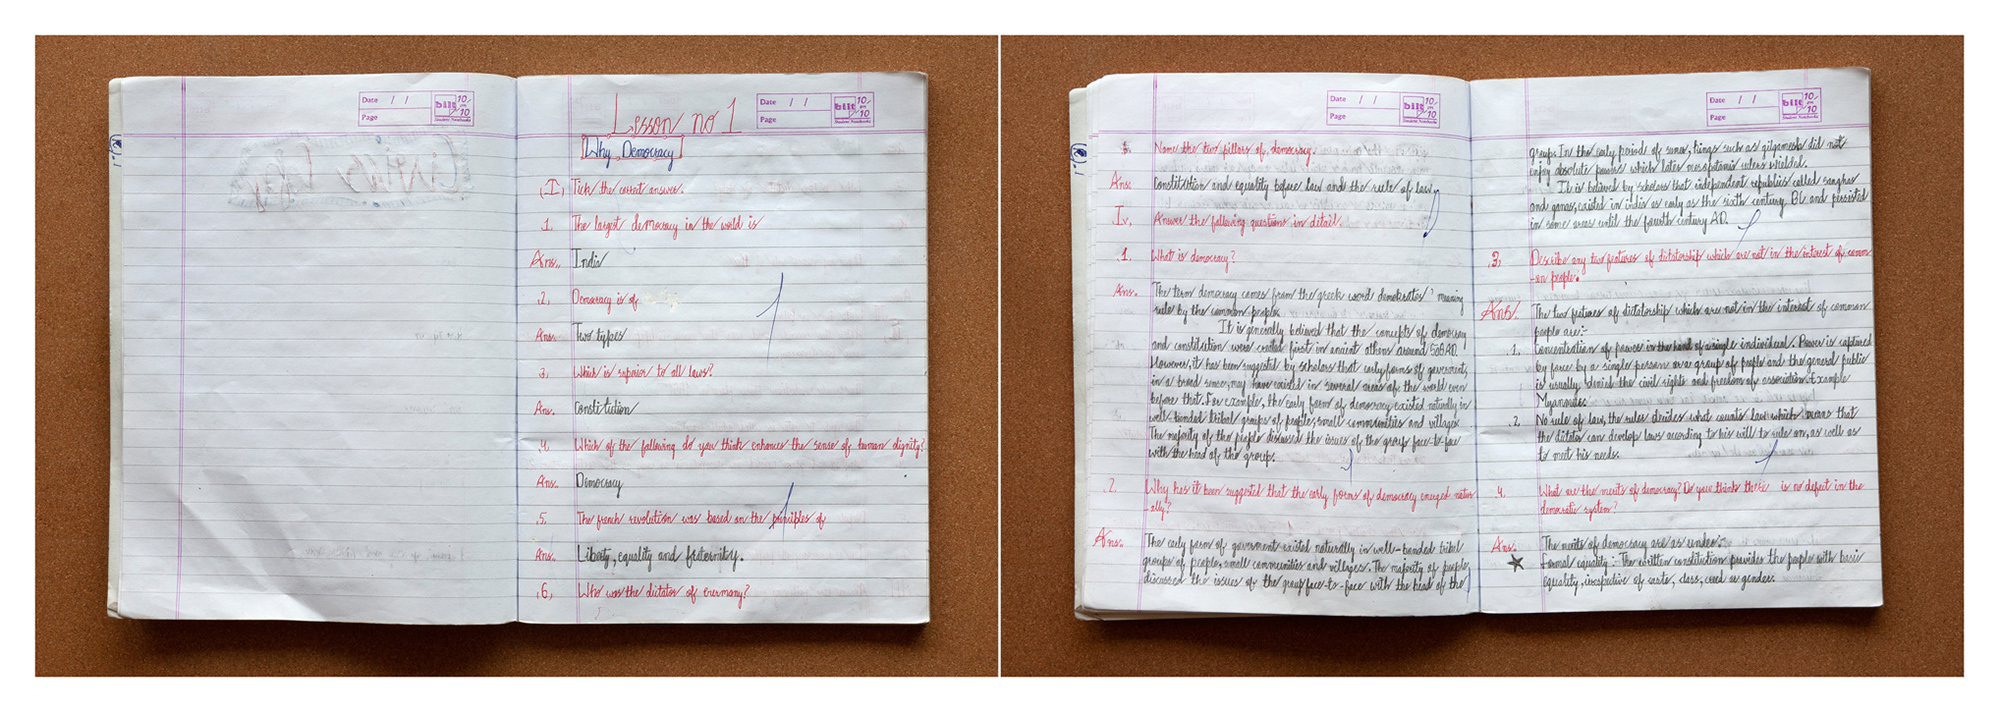 Date / /
Page
bilt
10 on 10
Student Notebooks
Lesson no 1
Date / /
Page
bilt
10 on 10
Student Notebooks
Why Democracy
(I) Tick the correct answer.
1. The largest democracy in the world is
Ans. India
2. Democracy is of
Ans. Two types
3. Which is superior to all laws?
Ans. Constitution
4. Which of the following do you think enhances the sense of human dignity?
Ans. Democracy
5. The french revolution was based on the principles of
Ans. Liberty, equality and fraternity.
6. Who was the dictator of Germany?
Date / /
Page
bilt
10 on 10
Student Notebooks
Name the two pillars of democracy.
Ans. Constitution and equality before law and the rule of law
Iv. Answer the following questions in detail.
1. What is democracy?
Ans. The term democracy comes from the greek word meaning
rule by the common people.
It is generally believed that the concepts of democracy
and constitution were created first in ancient athens around 508 AD.
However, it has been suggested by scholars that early forms of goverment,
in a broad sense, may have existed in several areas of the world even
before that. For example, the early form of democracy existed naturally in
well-bonded tribal groups of people, small communities and villages
The majority of the people discussed the issues of the group face-to-face
with the head of the group.
2. Why has it been suggested that the early forms of democracy emerged natur
-ally?
Ans. The early form of goverment existed naturally in well-bonded tribel
groups of people, small communities and villages. The majority of people
discussed the issues of the group face-to-face with the head of the
Date / /
Page
bilt
10 on 10
Student Notebooks
group. In the early period of sumer, kings such as gilgamesh did not
enjoy absolute powers which later mesopotamia rulers wielded.
It is believed by scholars that independent republics called sanghas
and ganas, existed in india as early as the sixth century BC and persisted
in some areas until the fourth century AD.
3. Describe any two features of dictatorship which are not in the interest of comm
-on people.
Ans. The two features of dictatorship which are not in the interest of common
people are:-
1. Concentration of power in the hand of a single individual. Power is captured
by force by a single person or a group of people and the general public
is usually denied the civil rights and freedom of association. Example
2. No rule of law, the ruler decides what counts law which means that
the dictator can develop laws according to his will to rule on, as well as
to meet his needs.
4. What are the merits of democracy? Do you think there is no defect in the
democratic system?
Ans. The merits of democracy are as under:-
Formal equality: The written constitution provides the people with basic
equality, irrespective of caste, class, creed or gender.